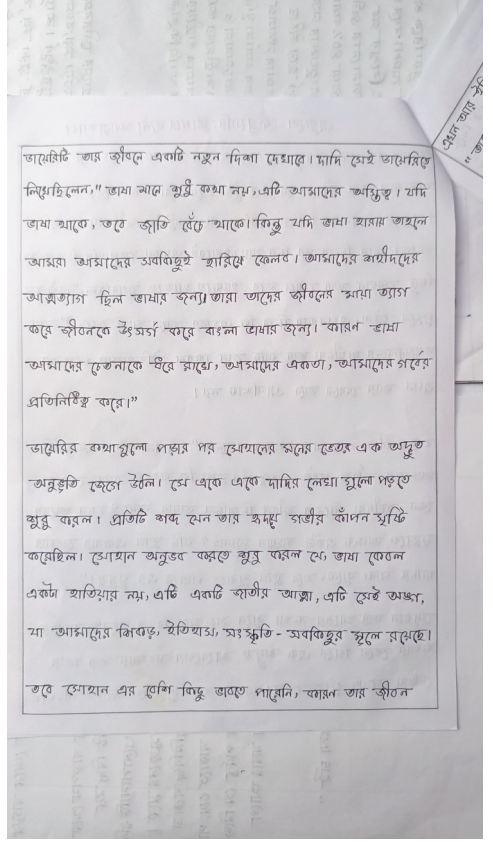 ডায়েরিটি তার জীবনে একটি নতুন দিশা দেখাবে। দাদি সেই ডায়েরিতে
লিখেছিলেন," ভাষা মানে শুধু কথা নয়, এটি আমাদের অস্তিত্ব। যদি
ভাষা থাকে, তবে জাতি বেঁচে থাকে। কিন্তু যদি ভাষা হারায় তাহলে
আমরা আমাদের সবকিছুই হারিয়ে ফেলব। আমাদের শহীদদের
আত্মত্যাগ ছিল ভাষার জন্য। তারা তাদের জীবনের মায়া ত্যাগ
করে জীবনকে উৎসর্গ করে বাংলা ভাষার জন্য। কারন ভাষা
আমাদের চেতনাকে ধরে রাখে, আমাদের একতা, আমাদের গর্বের
প্রতিনিধিত্ব করে।"
ডায়েরির কথাগুলো পড়ার পর সোহানের মনের ভেতর এক অদ্ভুত
অনুভূতি জেগে উঠলি। সে একে একে দাদির লেখা গুলো পড়তে
শুরু করল। প্রতিটি শব্দ যেন তার হৃদয়ে গভীর কাঁপন সৃষ্টি
করেছিল। সোহান অনুভব করতে শুরু করল যে, ভাষা কেবল
একটা হাতিয়ার নয়, এটি একটি জাতীর আত্মা, এটি সেই অঙ্গ,
যা আমাদের শিকড়, ইতিহাস, সংস্কৃতি - সবকিছুর মূলে রয়েছে।
তবে সোহান এর বেশি কিছু ভাবতে পারেনি, কারন তার জীবন
এখন আর